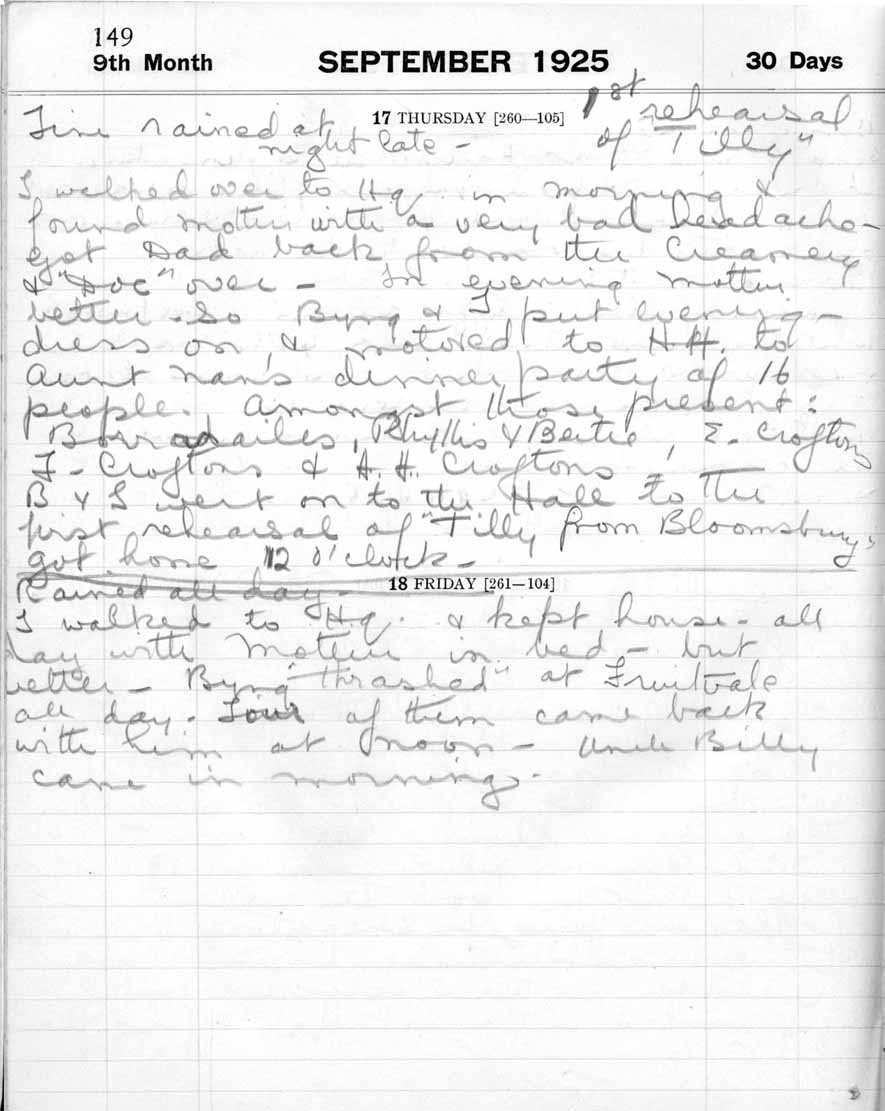 149
9th Month SEPTEMBER 1925 30 Days
17 THURSDAY [260—105]
1st rehearsal
of "Tilly"
Fine rained at
night late -
I walked over to Hq. in morning &
found mother with a very bad headache -
got Dad back from the Creamery
& "Doc" over - In evening mother
better - So Byng & I put evening -
dress on, & motored to H.H. to
Aunt Nan's dinner party of 16
people. Amongst those present:
Borradailes, Phyllis & Bertie, E. Croftons
F - Croftons & A.H. Croftons
B & I went on to the Hall to the
first rehearsal of "Tilly from Bloomsbury"
got home 12 o'clock -
18 FRIDAY [261—104]
Rained all day -
I walked to Hq. & kept house - all
day with Mother in bed - but
better - Byng "thrashed" at Fruitvale
all day. Four of them came back
with him at noon - Uncle Billy
came in morning.